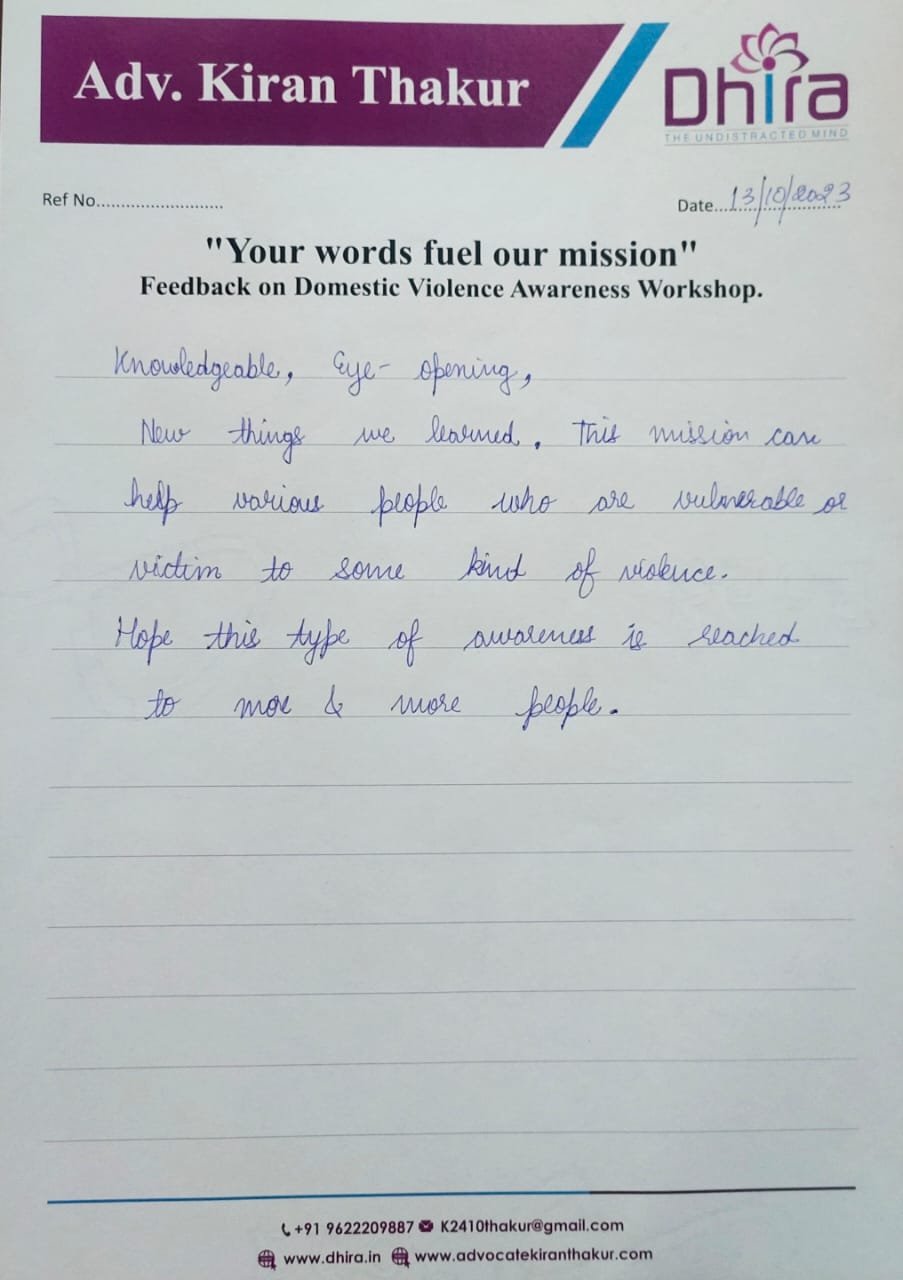 Adv. Kiran Thakur
Dhira
THE UNDISTRACTED MIND
Ref No..........................
Date...13/10/2023
"Your words fuel our mission"
Feedback on Domestic Violence Awareness Workshop.
Knowledgeable, Eye-opening,
New things we learned. This mission can
help various people who are vulnerable or
victim to some kind of violence.
Hope this type of awareness is reached
to more & more people.
+91 9622209887 K2410thakur@gmail.com
www.dhira.in www.advocatekiranthakur.com